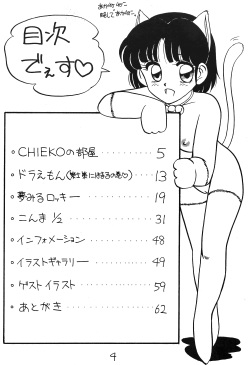 目次
でぇす♡
CHIEKOの部屋 ・・・・・・・・ 5
ドラえもん ・・・ 13
夢みるロッキー ・・・・・・・・ 19
こんま 1/2 ・・・・・・・・ 31
インフォメーション ・・・・・・・・ 48
イラストギャラリー ・・・・・・・・ 49
ゲストイラスト ・・・・・・・・ 59
あとがき ・・・・・・・・ 62
4